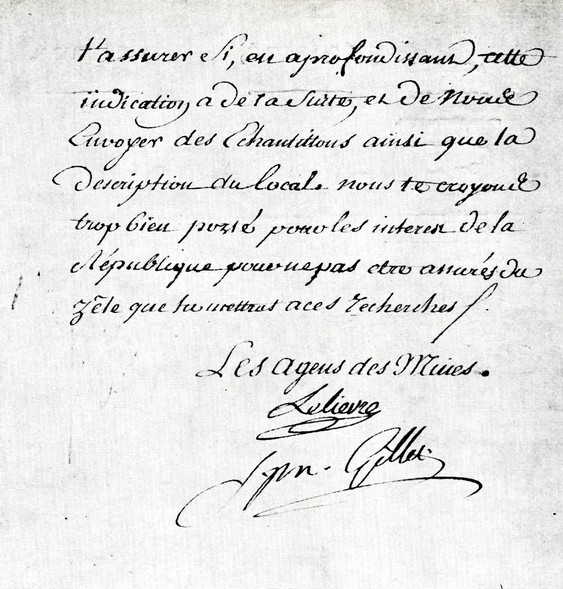 t'assurer Si, en aprofondissant, cette
indication a de la Suite, et de nous
Envoyer des Echantillons ainsi que la
description du local. nous te croyons
trop bien porté pour les interest de la
République pour ne pas etre assurés du
zèle que tu mettras a ces recherches
Les agens des Mines.
Lelievre
Gillet